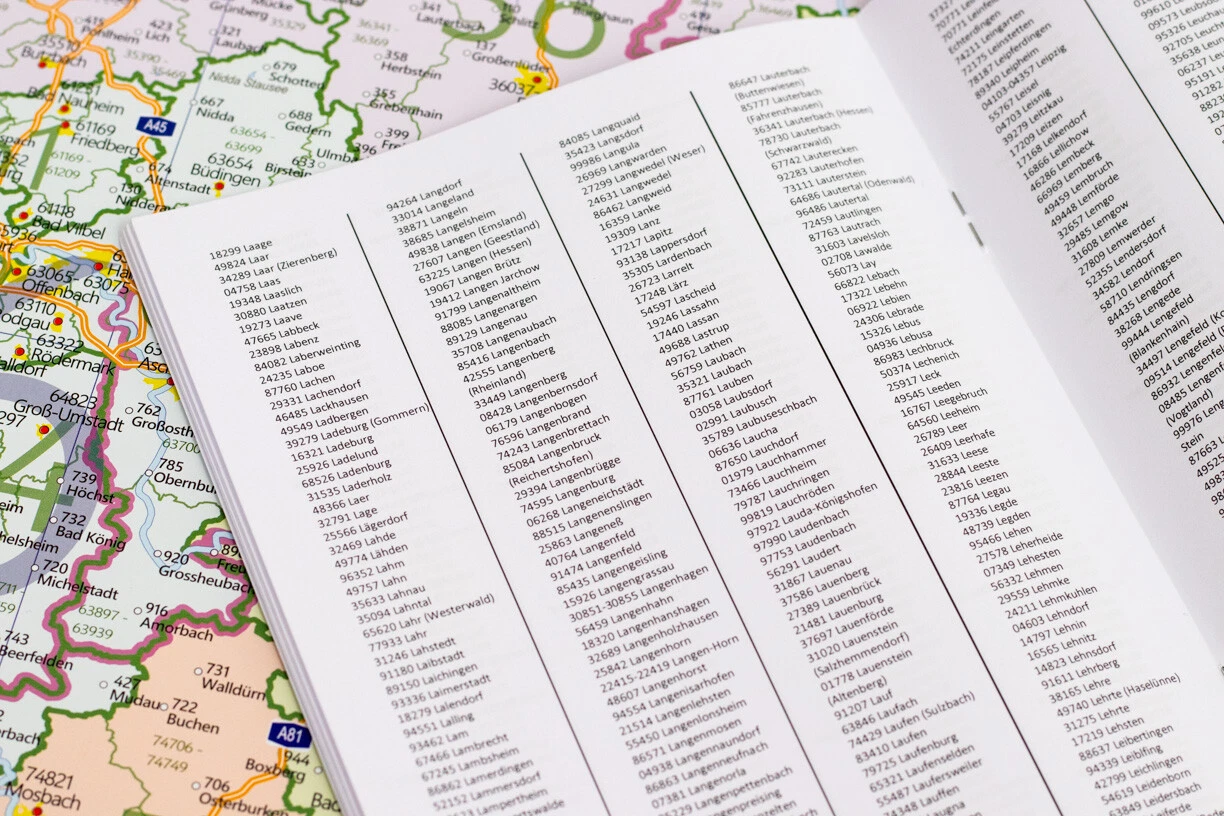 18299 Laage
49824 Laar
34289 Laar (Zierenberg)
04758 Laas
19348 Laaslich
30880 Laatzen
19273 Laave
47665 Labbeck
23898 Labenz
84082 Laberweinting
24235 Laboe
87760 Lachen
29331 Lachendorf
46485 Lackhausen
49549 Ladbergen
39279 Ladeburg (Gommern)
16321 Ladeburg
25926 Ladelund
68526 Ladenburg
31535 Laderholz
48366 Laer
32791 Lage
25566 Lägerdorf
32469 Lahde
49774 Lähden
96352 Lahm
49757 Lahn
35633 Lahnau
35094 Lahntal
65620 Lahr (Westerwald)
77933 Lahr
31246 Lahstedt
91180 Laibstadt
89150 Laichingen
93336 Laimerstadt
18279 Lalendorf
94551 Lalling
93462 Lam
67466 Lambrecht
67245 Lambsheim
86862 Lamerdingen
52152 Lammersdorf
Lampertheim
94264 Langdorf
33014 Langeland
38871 Langeln
38685 Langelsheim
49838 Langen (Emsland)
27607 Langen (Geestland)
63225 Langen (Hessen)
19067 Langen Brütz
19412 Langen Jarchow
91799 Langenaltheim
88085 Langenargen
89129 Langenau
35708 Langenaubach
85416 Langenbach
42555 Langenberg
(Rheinland)
33449 Langenberg
08428 Langenbernsdorf
06179 Langenbogen
76596 Langenbrand
74243 Langenbrettach
85084 Langenbruck
(Reichertshofen)
29394 Langenbrügge
74595 Langenburg
06268 Langeneichstädt
88515 Langenenslingen
25863 Langeneß
40764 Langenfeld
91474 Langenfeld
85435 Langengeisling
15926 Langengrassau
30851-30855 Langenhagen
56459 Langenhahn
18320 Langenhanshagen
32689 Langenholzhausen
25842 Langenhorn
22415-22419 Langen-Horn
48607 Langenhorst
94554 Langenisarhofen
21514 Langenlehsten
55450 Langenlonsheim
86571 Langenmosen
04938 Langennaundorf
86863 Langenneufnach
07381 Langenorla
Langenpettenbach
Langenpreising
84085 Langquaid
35423 Langsdorf
99986 Langula
26969 Langwarden
27299 Langwedel (Weser)
24631 Langwedel
86462 Langweid
16359 Lanke
19309 Lanz
17217 Lapitz
93138 Lappersdorf
35305 Lardenbach
26723 Larrelt
17248 Lärz
54597 Lascheid
19246 Lassahn
17440 Lassan
49688 Lastrup
49762 Lathen
56759 Laubach
35321 Laubach
87761 Lauben
03058 Laubsdorf
02991 Laubusch
35789 Laubuseschbach
06636 Laucha
87650 Lauchdorf
01979 Lauchhammer
73466 Lauchheim
79787 Lauchringen
99819 Lauchröden
97922 Lauda-Königshofen
97990 Laudenbach
97753 Laudenbach
56291 Laudert
31867 Lauenau
37586 Lauenberg
27389 Lauenbrück
21481 Lauenburg
37697 Lauenförde
31020 Lauenstein
(Salzhemmendorf)
01778 Lauenstein
(Altenberg)
91207 Lauf
63846 Laufach
74429 Laufen (Sulzbach)
83410 Laufen
79725 Laufenburg
65321 Laufenselden
55487 Laufersweiler
74348 Lauffen
86647 Lauterbach
(Buttenwiesen)
85777 Lauterbach
(Fahrenzhausen)
36341 Lauterbach (Hessen)
78730 Lauterbach
(Schwarzwald)
67742 Lauterecken
92283 Lauterhofen
73111 Lauterstein
64686 Lautertal (Odenwald)
96486 Lautertal
72459 Lautlingen
87763 Lautrach
31603 Lavelsloh
02708 Lawalde
56073 Lay
66822 Lebach
17322 Lebehn
06922 Lebien
24306 Lebrade
15326 Lebus
04936 Lebusa
86983 Lechbruck
50374 Lechenich
25917 Leck
49545 Leeden
16767 Leegebruch
64560 Leeheim
26789 Leer
26409 Leerhafe
31633 Leese
28844 Leeste
23816 Leezen
87764 Legau
19336 Legde
48739 Legden
95466 Lehen
27578 Leherheide
07349 Lehesten
56332 Lehmen
29559 Lehmke
24211 Lehmkuhlen
04603 Lehndorf
14797 Lehnin
16565 Lehnitz
14823 Lehnsdorf
91611 Lehrberg
38165 Lehre
49740 Lehrte (Haselünne)
31275 Lehrte
17219 Lehsten
88637 Leibertingen
94339 Leiblfing
42799 Leichlingen
54619 Leidenborn
63849 Leidersbach
74211 Leingarten
Echterdingen
72175 Leinstetten
78187 Leipferdingen
89340 Leipheim
04103-04357 Leipzig
55767 Leisel
04703 Leisnig
39279 Leitzkau
17209 Leizen
17168 Lelkendorf
16866 Lellichow
46286 Lembeck
66969 Lemberg
49459 Lembruch
49448 Lemförde
32657 Lemgo
29485 Lemgow
31608 Lemke
27809 Lemwerder
52355 Lendersdorf
34582 Lendorf
58710 Lendringsen
84435 Lengdorf
38268 Lengede
99444 Lengefeld
(Blankenhain)
34497 Lengefeld
09514 Lengefeld
86932 Lengenfeld
08485 Lengenfeld
(Vogtland)
99976
Stein
A45
679
Schotten
Nidda
Stausee
667
Nidda
688
Gedern
63654 -
63699
63654
Büdingen
61169
Friedberg
61169 -
61209
Bad Nauheim
Altenstadt
130
61118
Bad Vilbel
63065- 63075
Offenbach
63110
63322
Rödermark
64823
Groß-Umstadt
762
785
739
Höchst
732
Bad König
720
Michelstadt
920
Grossheubach
63897 -
63939
916
Amorbach
743
Beerfelden
427
Mudau
731
Walldürn
722
Buchen
74706 -
74749
A81
944
Boxberg
74821
Mosbach
706
Osterburken
321
Laubach
341
Lauterbach
358
Herbstein
137
Großenlüder
36037
355
Grebenhain
399
396
Lich